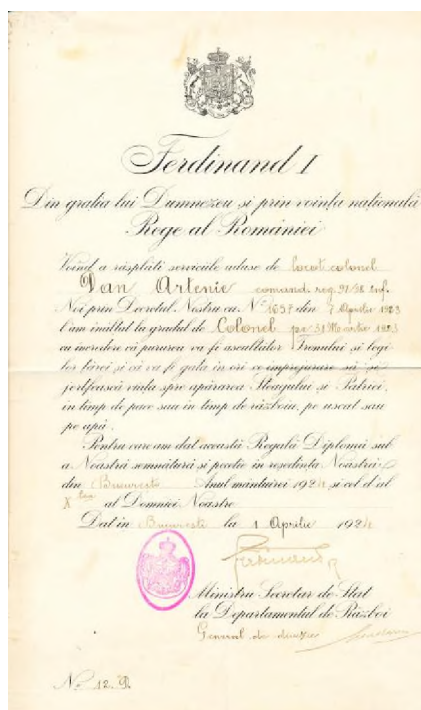 Ferdinand I
Din grația lui Dumnezeu și prin voința națională
Rege al României
Voind a răsplăti serviciile aduse de locot. colonel
Dan Artenie comand. reg. 91/98 Inf.
Noi prin Decretul Nostru cu No. din 7 Aprilie 1923
l'am inălțat la gradul de Colonel pe 31 Martie 1923
cu incredere că pururea va fi ascultător Tronului și legi
lor țărei și că va fi gata in ori ce imprejurare să 'și
jertfească viața spre apărarea Steagului și Patriei,
in timp de pace sau in timp de războiu, pe uscat sau
pe apă.
Pentru care am dat această Regală Diplomă sub
a Noastră semnătură și pecetie in reședința Noastră
din București Anul mântuirei 1924 și cel d'al
X lea al Domniei Noastre
Dat in București la 1 Aprilie 1924
Ferdinand
Ministru Secretar de Stat
la Departamentul de Războiu
General de divizie
No. 12.